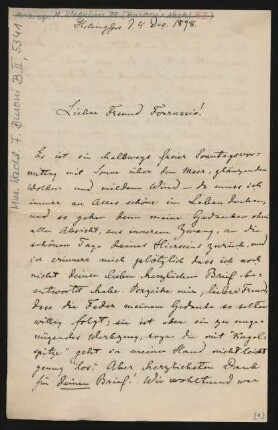 Mus. Nachl. F. Busoni B II, 5341
Helsingfors d. 4 Dec. 1898.
Lieber Freund Ferruccio!
Es ist ein halbwegs feiner Sonntagsvor-
mittag mit Sonne über dem Meer, glänzenden
Wolken und mildem Wind – da muss ich
immer an Alles schöne im Leben denken,
und so gehen denn meine Gedanken ohne
alle Absicht, aus innerem Zwang, an die
schönen Tage Deines Hierseins zurück, und
ich erinnere mich plötzlich dass ich noch
nicht Deinen lieben herzlichen Brief be-
antwortet habe. Verzeihe mir, lieber Freund,
dass die Feder meinem Gedanken so selten
willig folgt; sie ist eben ein zu unge-
nügendes Werkzeug, sogar die mit "Kugel-
spitze" geht in meiner Hand nicht leicht
genug los. Aber herzlichsten Dank
für Deinen Brief! Wie wohltuend war
[1]